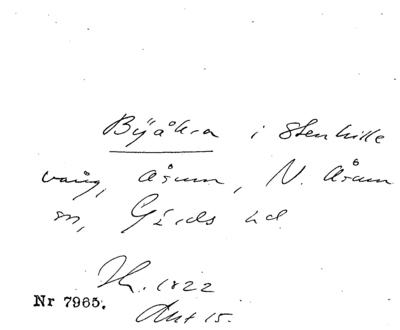 Byåkra i Stenkille
vång, Åsum, N. Åsum
sn, Gärds hd
Sk. 1822
Akt 15.
Nr 7965.